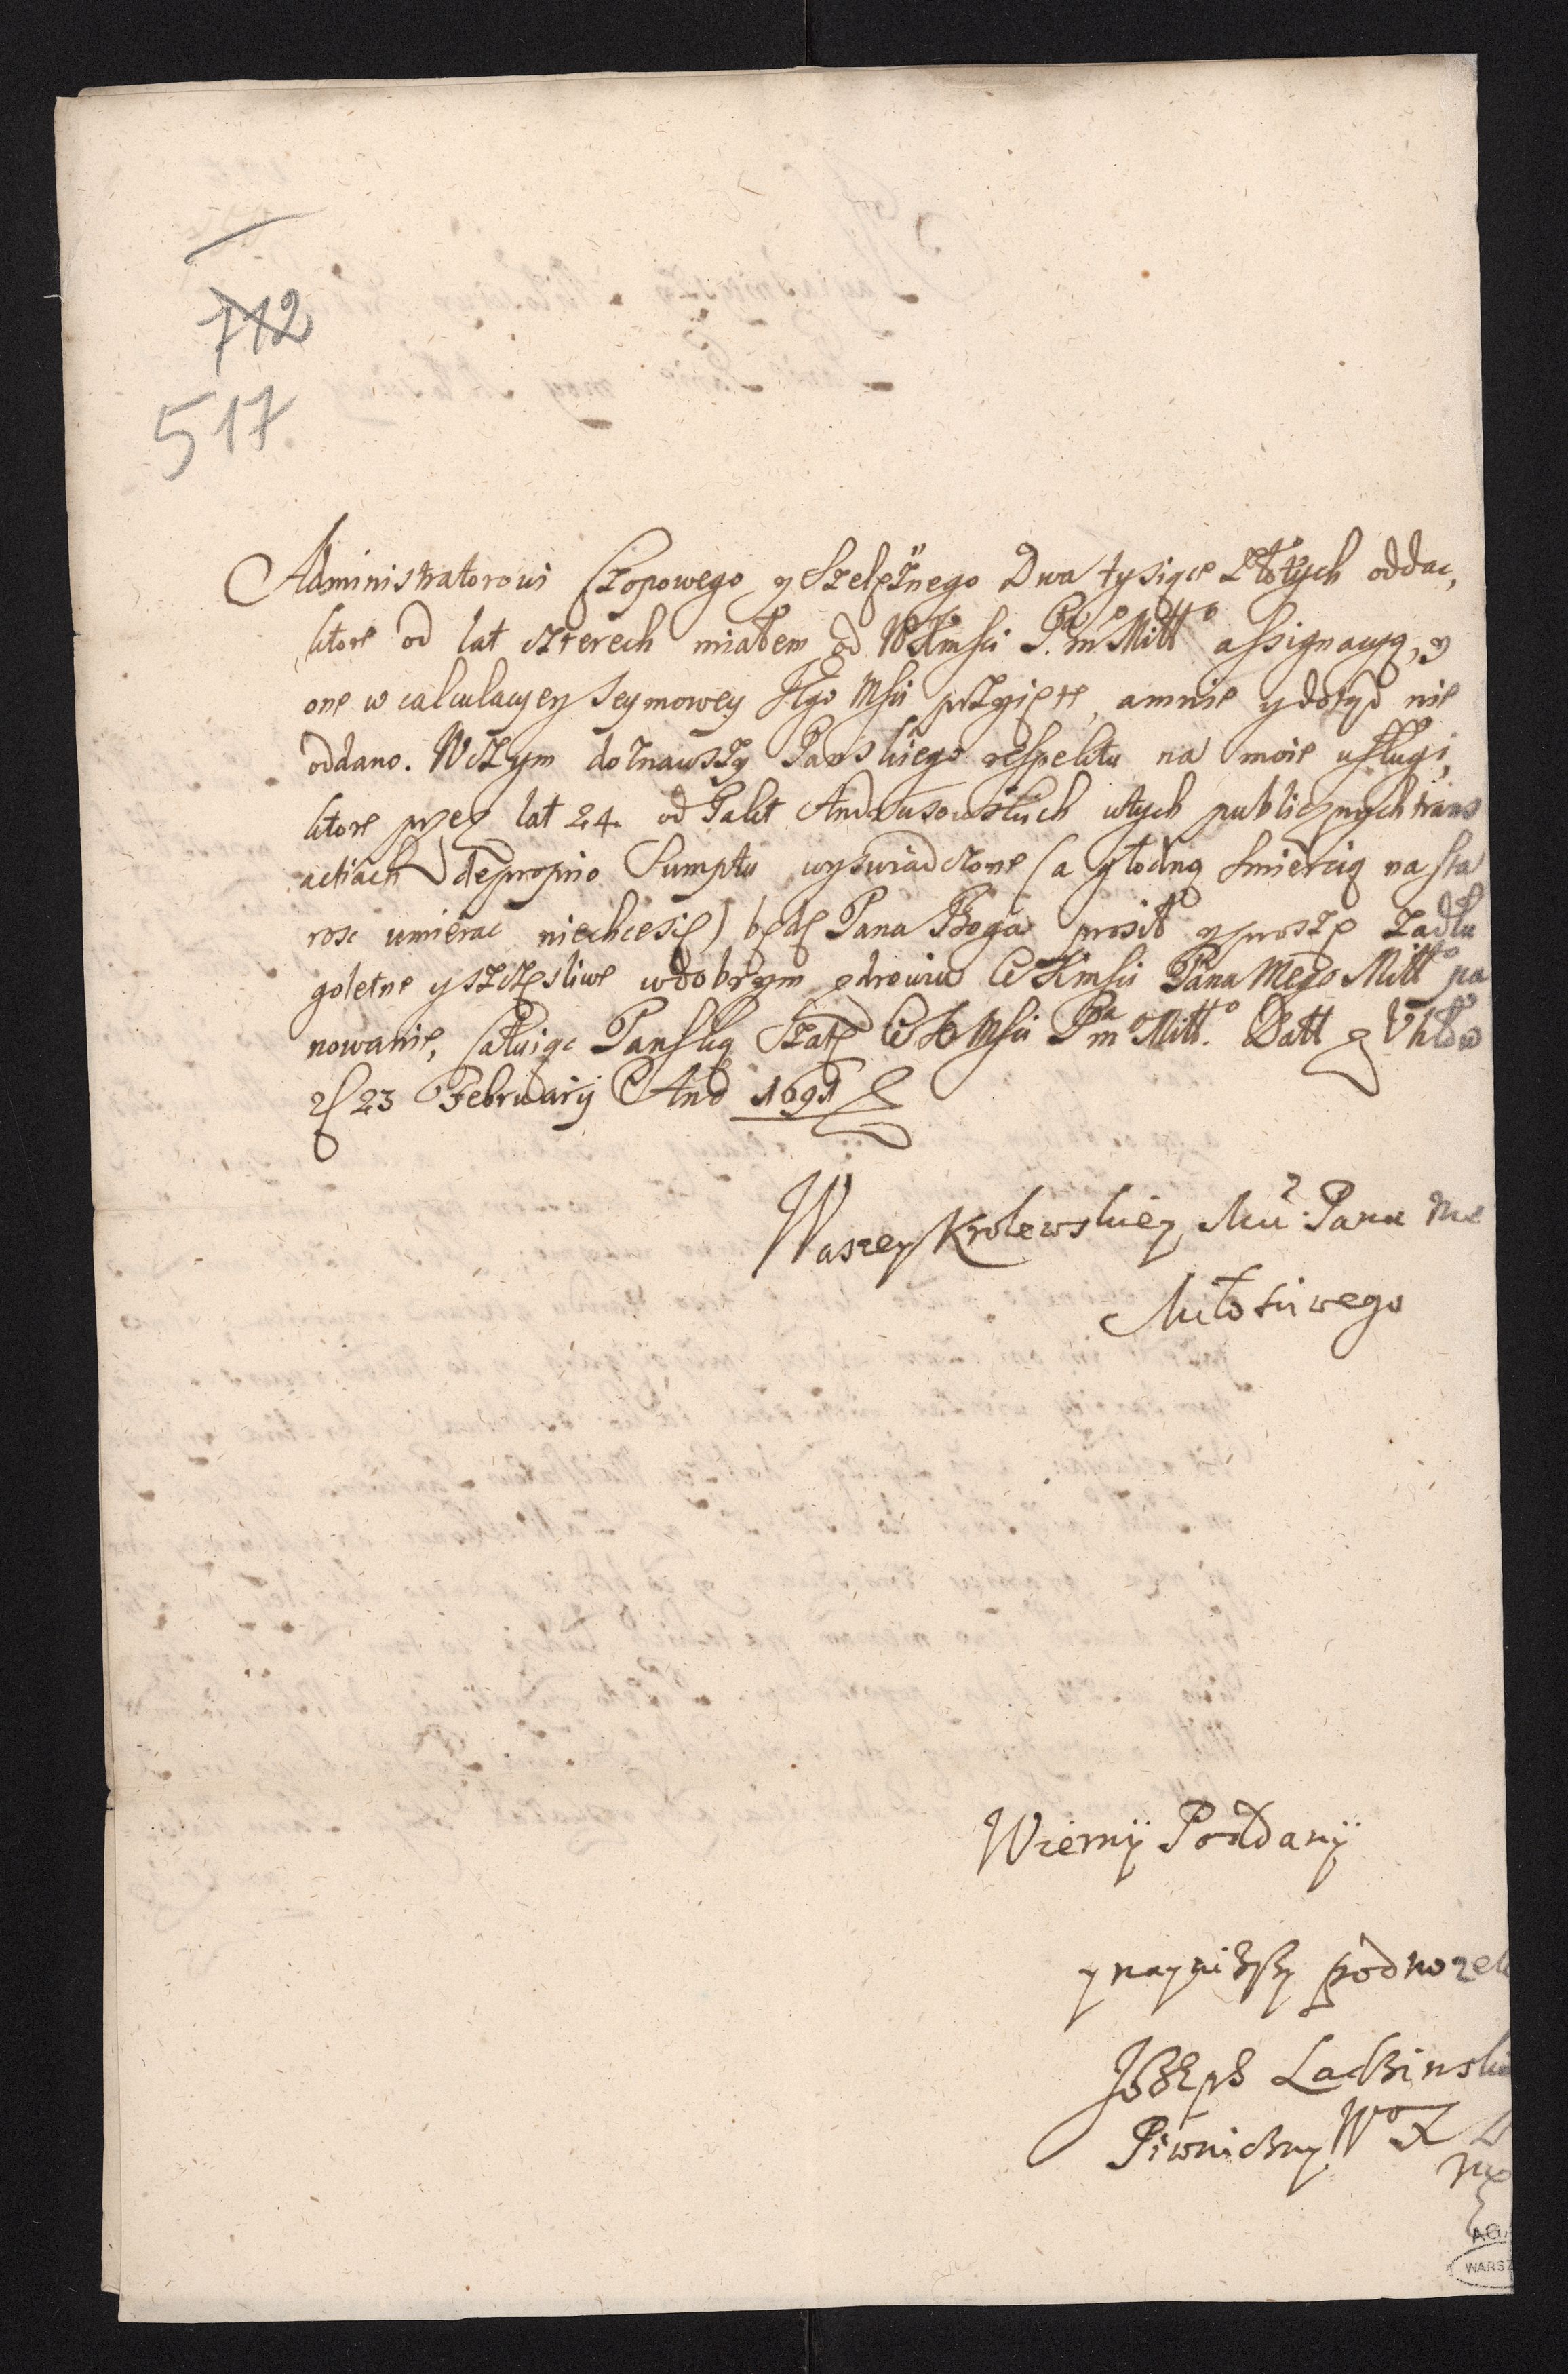 712
517
Administratorowi Czopowego y Szelężnego Dwa tysiące Złotych oddac,
ktore od lat czterech miałem od WKmsci P. m Miłłº assignacyą, y
one w calculacyey seymowey Jego Msci przyięte, a mnie y dotąd nie
oddano. W czym doznawszy Panskiego respektu na moie usługi,
ktore przez lat 24. od Pakt Andruszowskich w tych publicznych trans
actiach de proprio Sumptu wyswiadczone (a głodną smiercią na sta
rosc umierac niechce się) będę Pana Boga prosił y proszę za dłu
goletne y szczęsliwe w dobrym zdrowiu WKmsci Pana Mego Miłłº pa
nowanie, całuiąc Panską Szatę WKMsci Pª mº Miłłº. Datt z
23 February Anô 1691
Waszey Krolewskiey Mci Pana Me
Miłosciwego
Wierny Poddany
y nayniższy podnozek
Jozeph Ladzinski
Piwniczny Wº X L
mp
AG
WARSZ